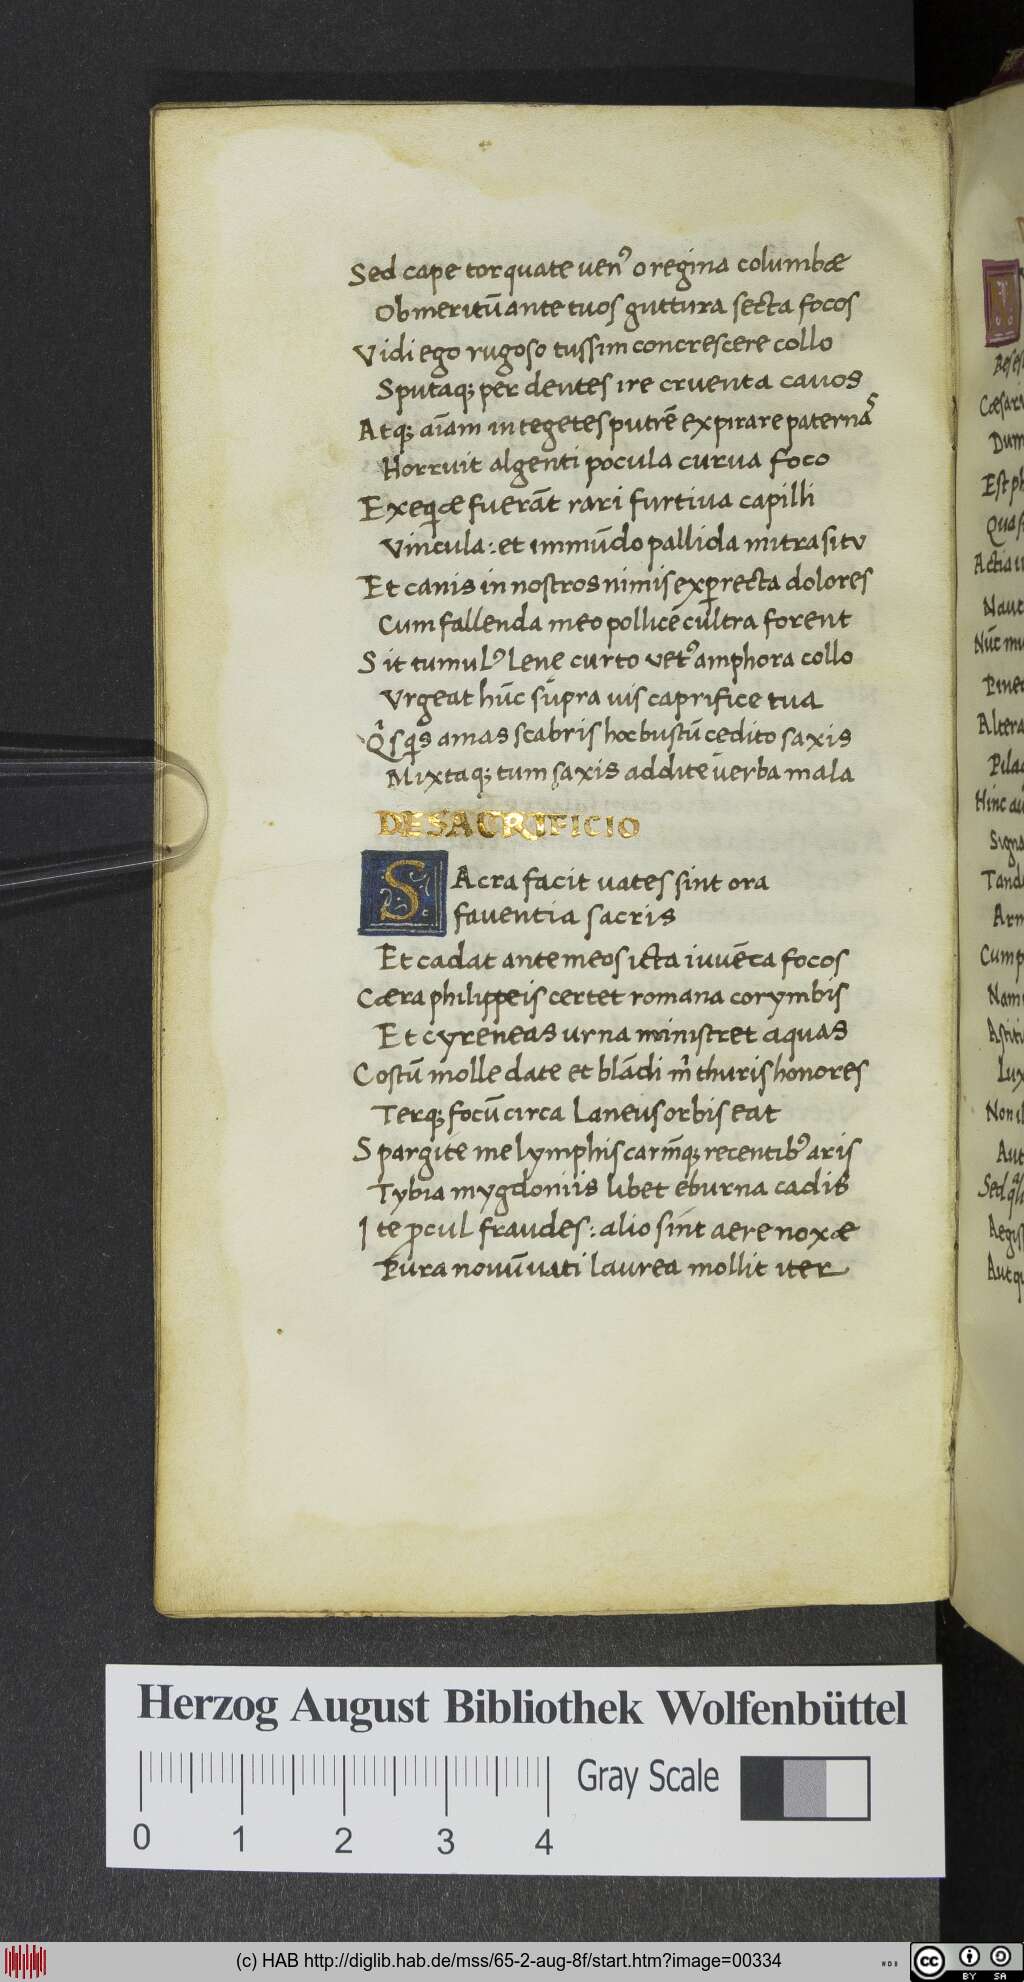 Sed cape torquate ven⁹ o regina columbæ
Ob meritū ante tuos guttura secta focos
Vidi ego rugoso tussim concrescere collo
Sputaq; per dentes ire cruenta cavos
Atq; aīam in tegetes putrē expirare paternas
Horruit algenti pocula curva foco
Exeqiæ fuerāt rari furtiva capilli
Vincula: et immūdo pallida mitra sitv
Et canis in nostros nimis experrecta dolores
Cum fallenda meo pollice cultra forent
Sit tumul⁹ lene curto vet⁹ amphora collo
Vrgeat hūc supra vis caprifice tua
Qisqis amas scabris hoc bustū cedito saxis
Mixtaq; tum saxis addite verba mala
DE SACRIFICIO
SAcra facit vates sint ora
faventia sacris
Et cadat ante meos icta iuvēca focos
Cæra philippeis certet romana corymbis
Et cyreneas urna ministret aquas
Costū molle date et blādi m̄ thuris honores
Terq; focū circa Laneus orbis eat
Spargite me lymphis carm̄q; recentib⁹ aris
Tybia mygdoniis libet eburna cadis
Ite pcul fraudes: alio sint aere noxæ
Pura novū vati laurea mollit iter
Cæsari
Dum
Herzog August Bibliothek Wolfenbüttel
0 1 2 3 4
Gray Scale
(c) HAB http://diglib.hab.de/mss/65-2-aug-8f/start.htm?image=00334
cc BY SA